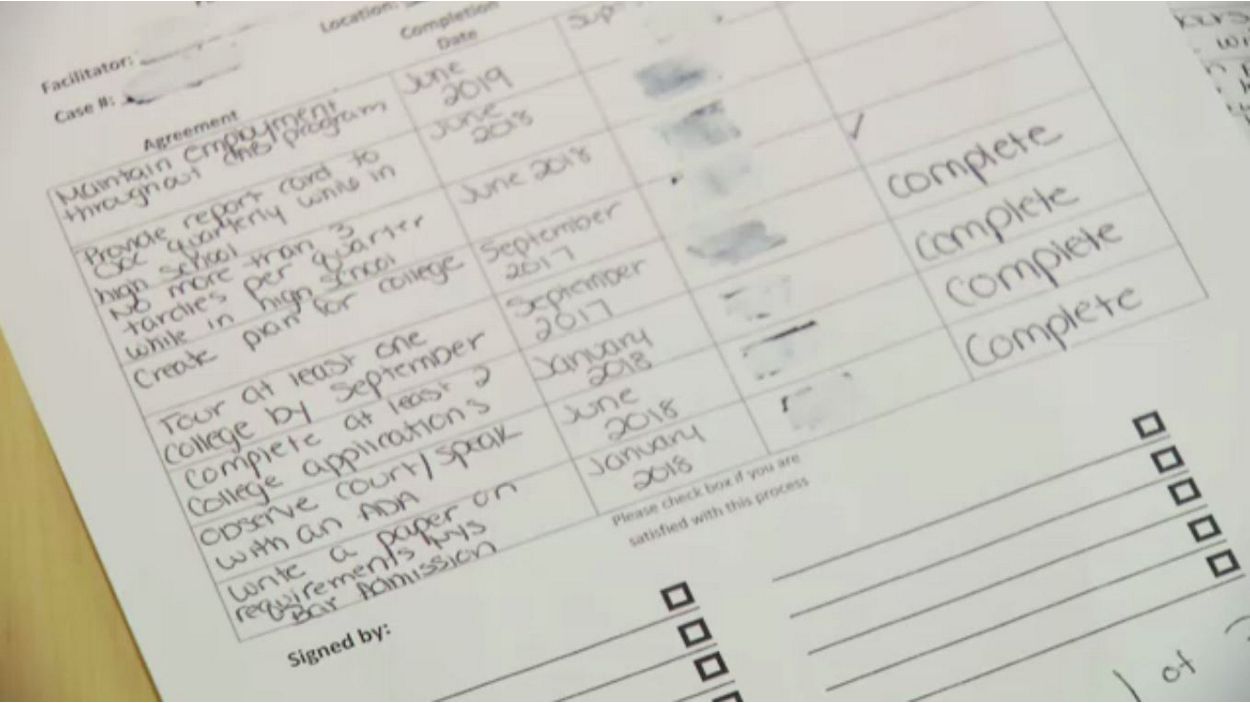 Facilitator:
Location:
Case #:
Agreement
Completion
Date
Sup
Maintain Employment
throughout this program
June
2019
Provide report card to
quarterly while in
high school
June
2018
No more than 3
tardies per quarter
while in high school
June 2018
✓
Create plan for college
September
2017
complete
Tour at least one
college by September
September
2017
Complete
Complete at least 2
college applications
January
2018
Complete
Observe court/speak
with an ADA
June
2018
Complete
Write a paper on
requirements NYS
Bar Admission
January
2018
Please check box if you are
satisfied with this process
Signed by:
1 of